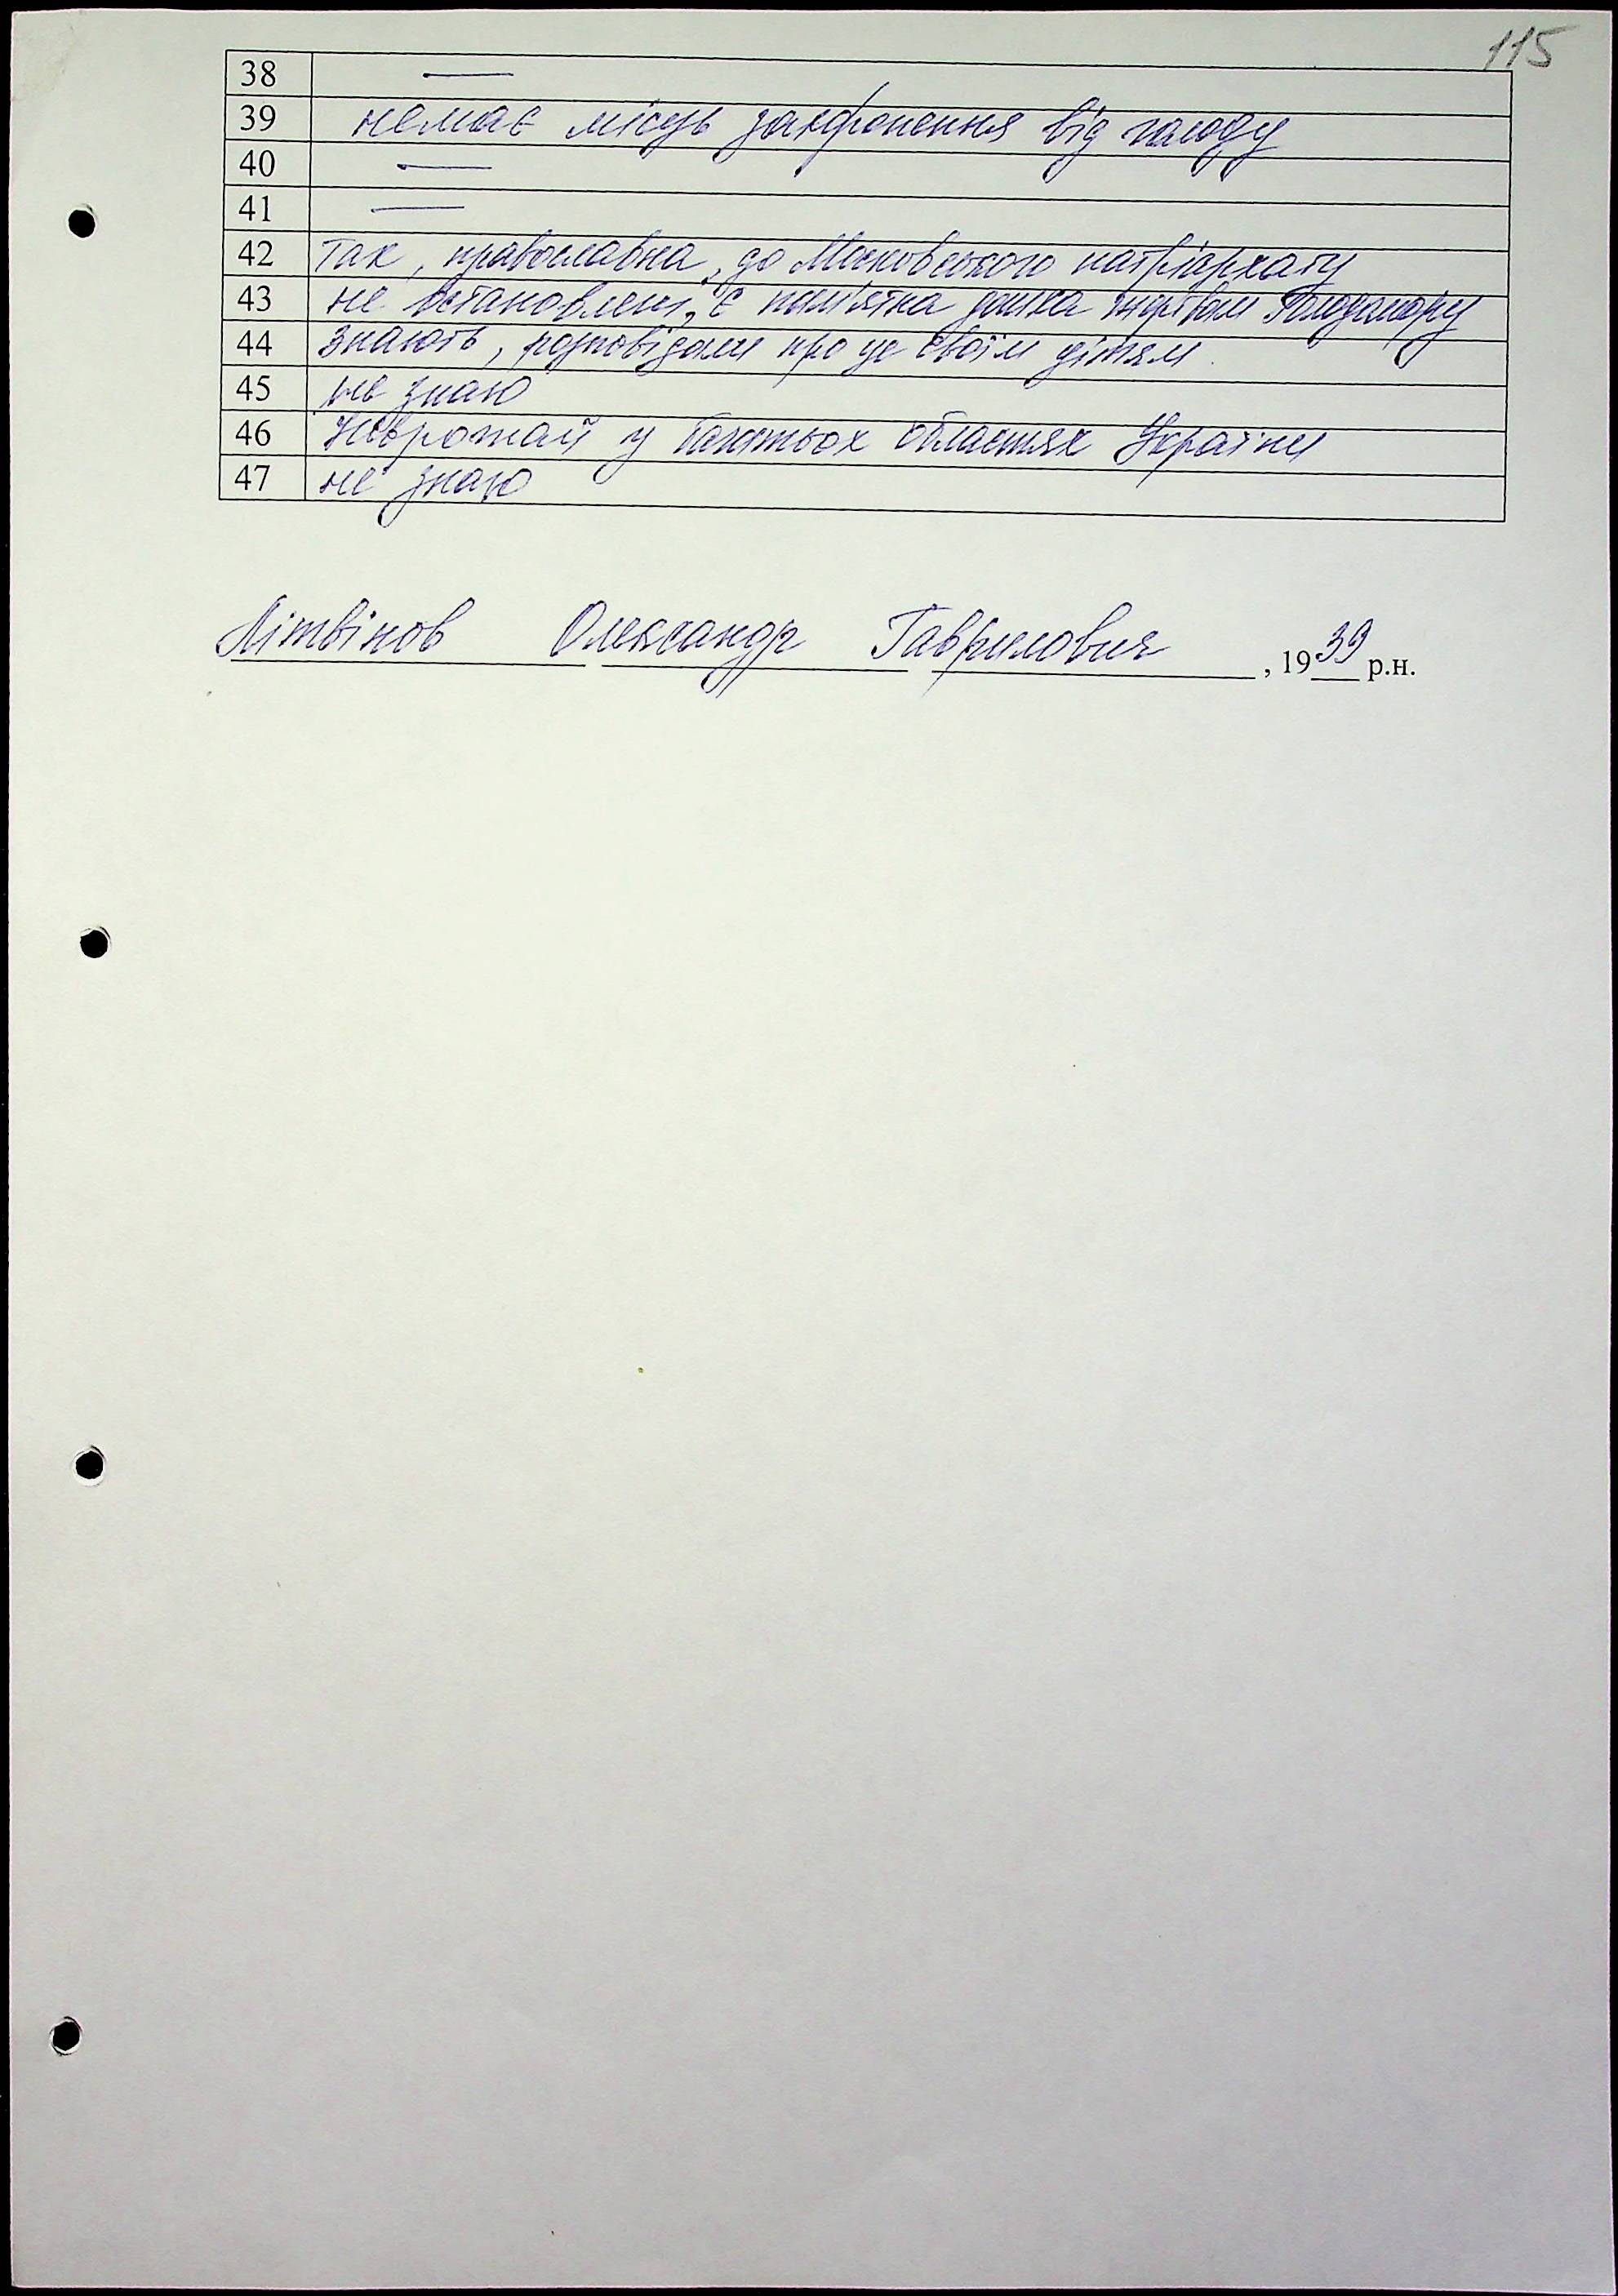 115
38 —
39 немає місць захоронення від голоду
40 —
41 —
42 Так, православна, до Московського патріархату
43 не встановлені, є пам'ятна дошка жертвам Голодомору
44 знають, розповідали про це своїм дітям.
45 не знаю
46 Неврожай у багатьох областях України
47 не знаю
Літвінов Олександр Гаврилович, 1939 р.н.